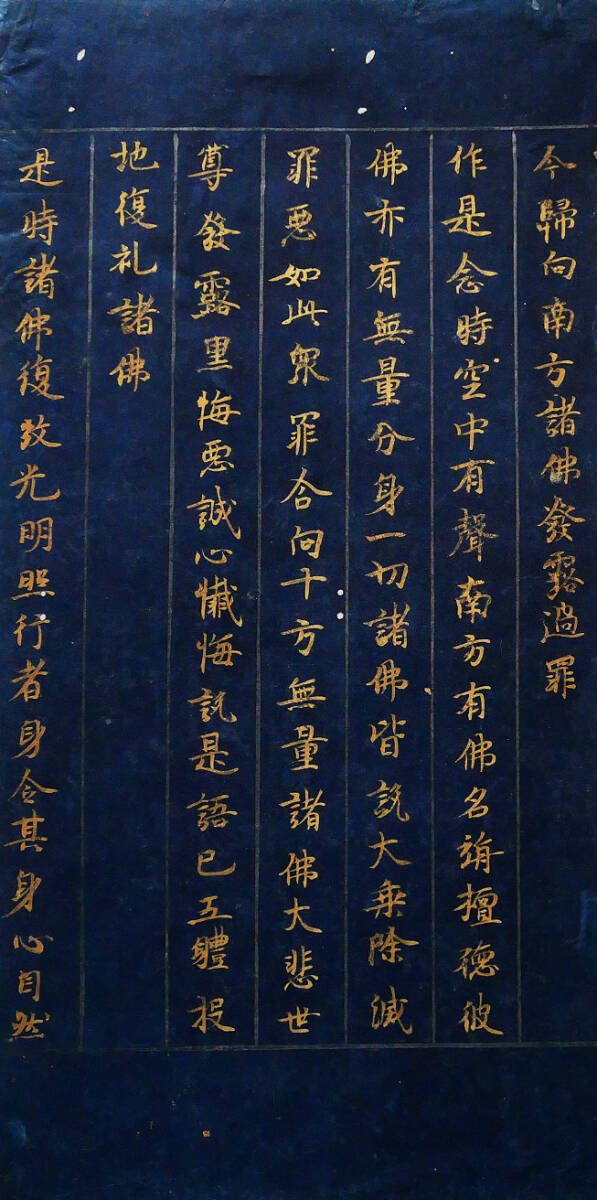 今歸向南方諸佛發露過罪
作是念時空中有聲南方有佛名旃檀德彼
佛亦有無量分身一切諸佛皆說大乘除滅
罪惡如此眾罪今向十方無量諸佛大悲世
尊發露黑悔惡誠心懺悔說是語已五體投
地復礼諸佛
是時諸佛復放光明照行者身令其身心自然